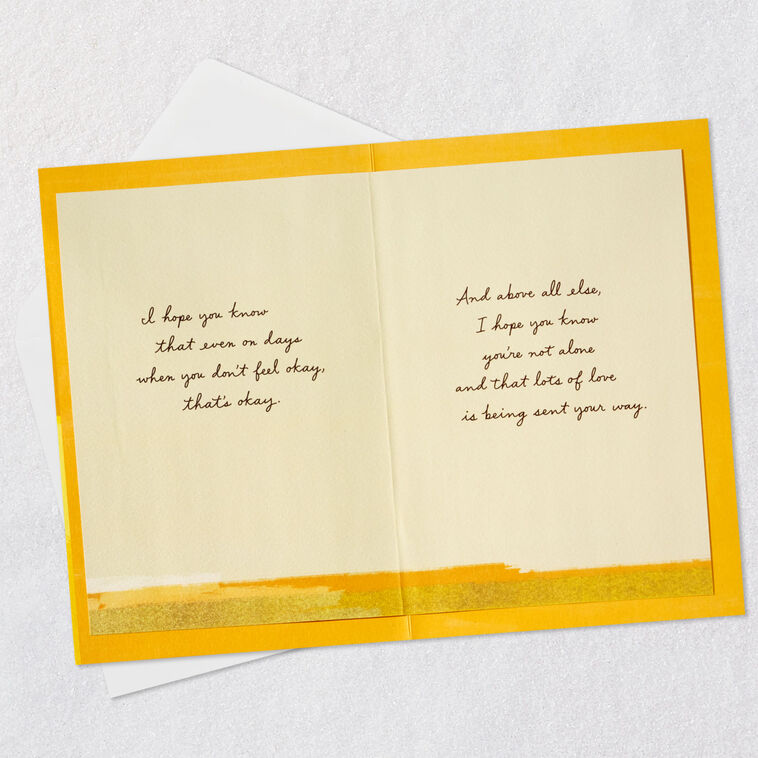 I hope you know
that even on days
when you don't feel okay,
that's okay.
And above all else,
I hope you know
you're not alone
and that lots of love
is being sent your way.